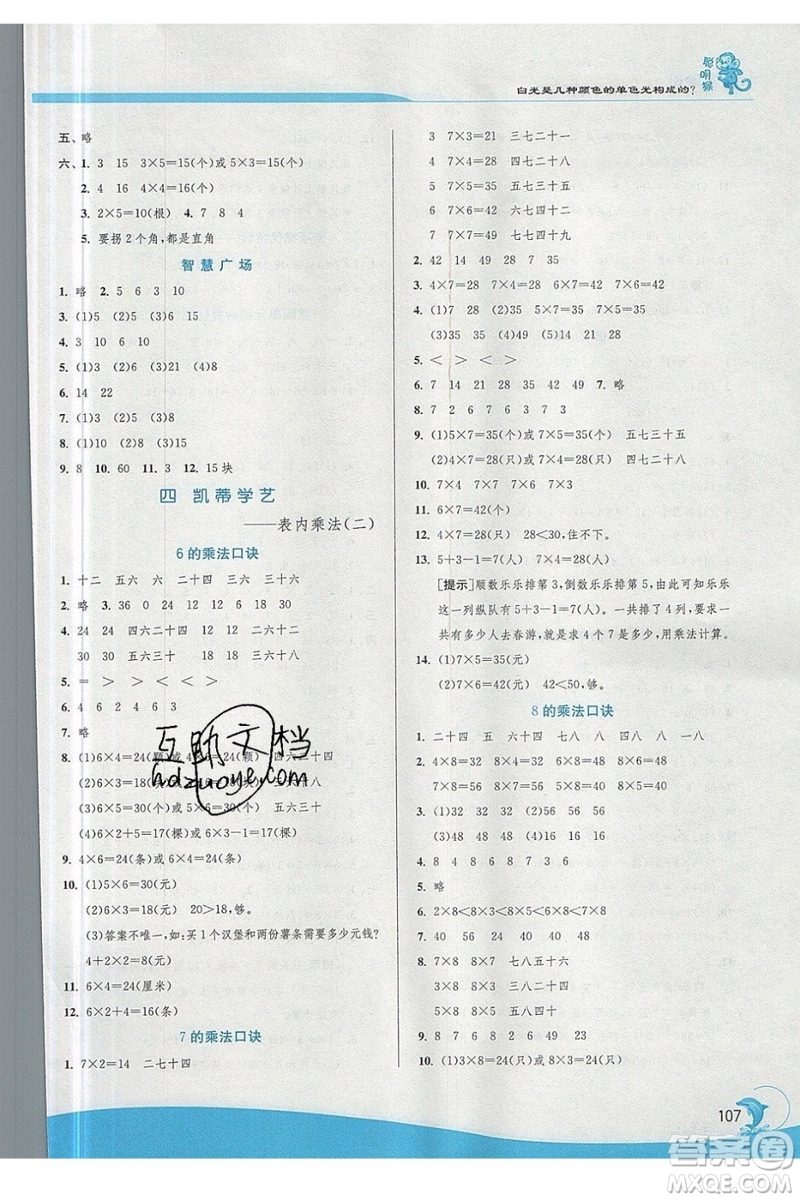 聪明猴
白光是几种颜色的单色光构成的?
五、略
六、1. 3 15 3×5=15(个)或 5×3=15(个)
2. 4 16 4×4=16(个)
3. 2×5=10(根) 4. 7 8 4
5. 要拐 2 个角,都是直角
智慧广场
1. 略 2. 5 6 3 10
3. (1)5 (2)5 (3)6 15
4. 3 10 6 10
5. (1)3 (2)7 (3)11 (4)8
6. 14 22
7. (1)5 (2)3 (3)8
8. (1)10 (2)7 (3)15
9. 8 10. 60 11. 3 12. 15块
四 凯蒂学艺
——表内乘法(二)
6 的乘法口诀
1. 十二 五六 六 二十四 三六 三十六
2. 略 3. 36 0 24 12 6 30
4. 24 24 四六二十四 12 12 二六十二
30 30 五六三十 18 18 三六十八
5. = > < < >
6. 4 6 2 4 6 3
7. 略
8. (1)6×4=24(颗)或 4×6=24(颗) 四六二十四
(2)6×3=18(个)或 3×6=18(个) 三六十八
(3)6×5=30(个)或 5×6=30(个) 五六三十
(4)6×2+5=17(棵)或 6×3-1=17(棵)
9. 4×6=24(条)或 6×4=24(条)
10. (1)5×6=30(元)
(2)6×3=18(元) 20>18,够。
(3)答案不唯一,如:买 1 个汉堡和两份薯条需要多少元钱?
4+2×2=8(元)
11. 6×4=24(厘米)
12. 6×2+4=16(条)
7 的乘法口诀
1. 7×2=14 二七十四
3 7×3=21 三七二十一
4 7×4=28 四七二十八
5 7×5=35 五七三十五
6 7×6=42 六七四十二
7 7×7=49 七七四十九
2. 42 14 49 28 7 35
3. 4×7=28 7×5=35 7×3=21 7×6=42
4. (1)7 28 (2)35 5×7=35 7×5=35
(3)35 35 (4)49 (5)14 21 28
5. < > < >
6. 7 14 21 28 35 42 49 7. 略
8. 7 2 6 7 7 3
9. (1)5×7=35(个)或 7×5=35(个) 五七三十五
(2)4×7=28(只)或 7×4=28(只) 四七二十八
10. 7×5=35(个)
11. 6×7=42(个)
12. 4×7=28(只) 28<30,住不下。
13. 5+3-1=7(人) 7×4=28(人)
[提示] 顺数乐乐排第 3,倒数乐乐排第 5,由此可知乐乐
这一列纵队有 5+3-1=7(人)。一共排了 4 列,要求一
共有多少人去春游,就是求 4 个 7 是多少,用乘法计算。
14. (1)7×5=35(元)
(2)7×6=42(元) 42<50,够。
8 的乘法口诀
1. 二十四 五 六十四 七八 八 四八 八 八
2. 4×8=32 8×4=32 6×8=48 8×6=48
7×8=56 8×7=56 5×8=40 8×5=40
3. (1)32 32 (2)56 56
(3)48 48 48 (4)16 24 32
4. 8 4 8 6 8 7 3 6
5. 略
6. 2×8<3×8<5×8<6×8<7×8<8×8
7. 40 56 24 40 16 48
8. 7×8 8×7 七八五十六
5×8 8×5 五八四十
9. 8 2 7 6 8 2 3 7 4 4 8
10. (1)3×8=24(只)或 8×3=24(只) 三八二十四
互助文档
hdzuoye.com
107
答案圈
MXQE.COM